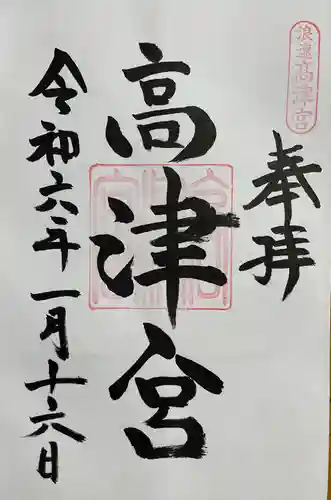 浪速高津宮
奉拝
高津宮
令和六年一月十六日